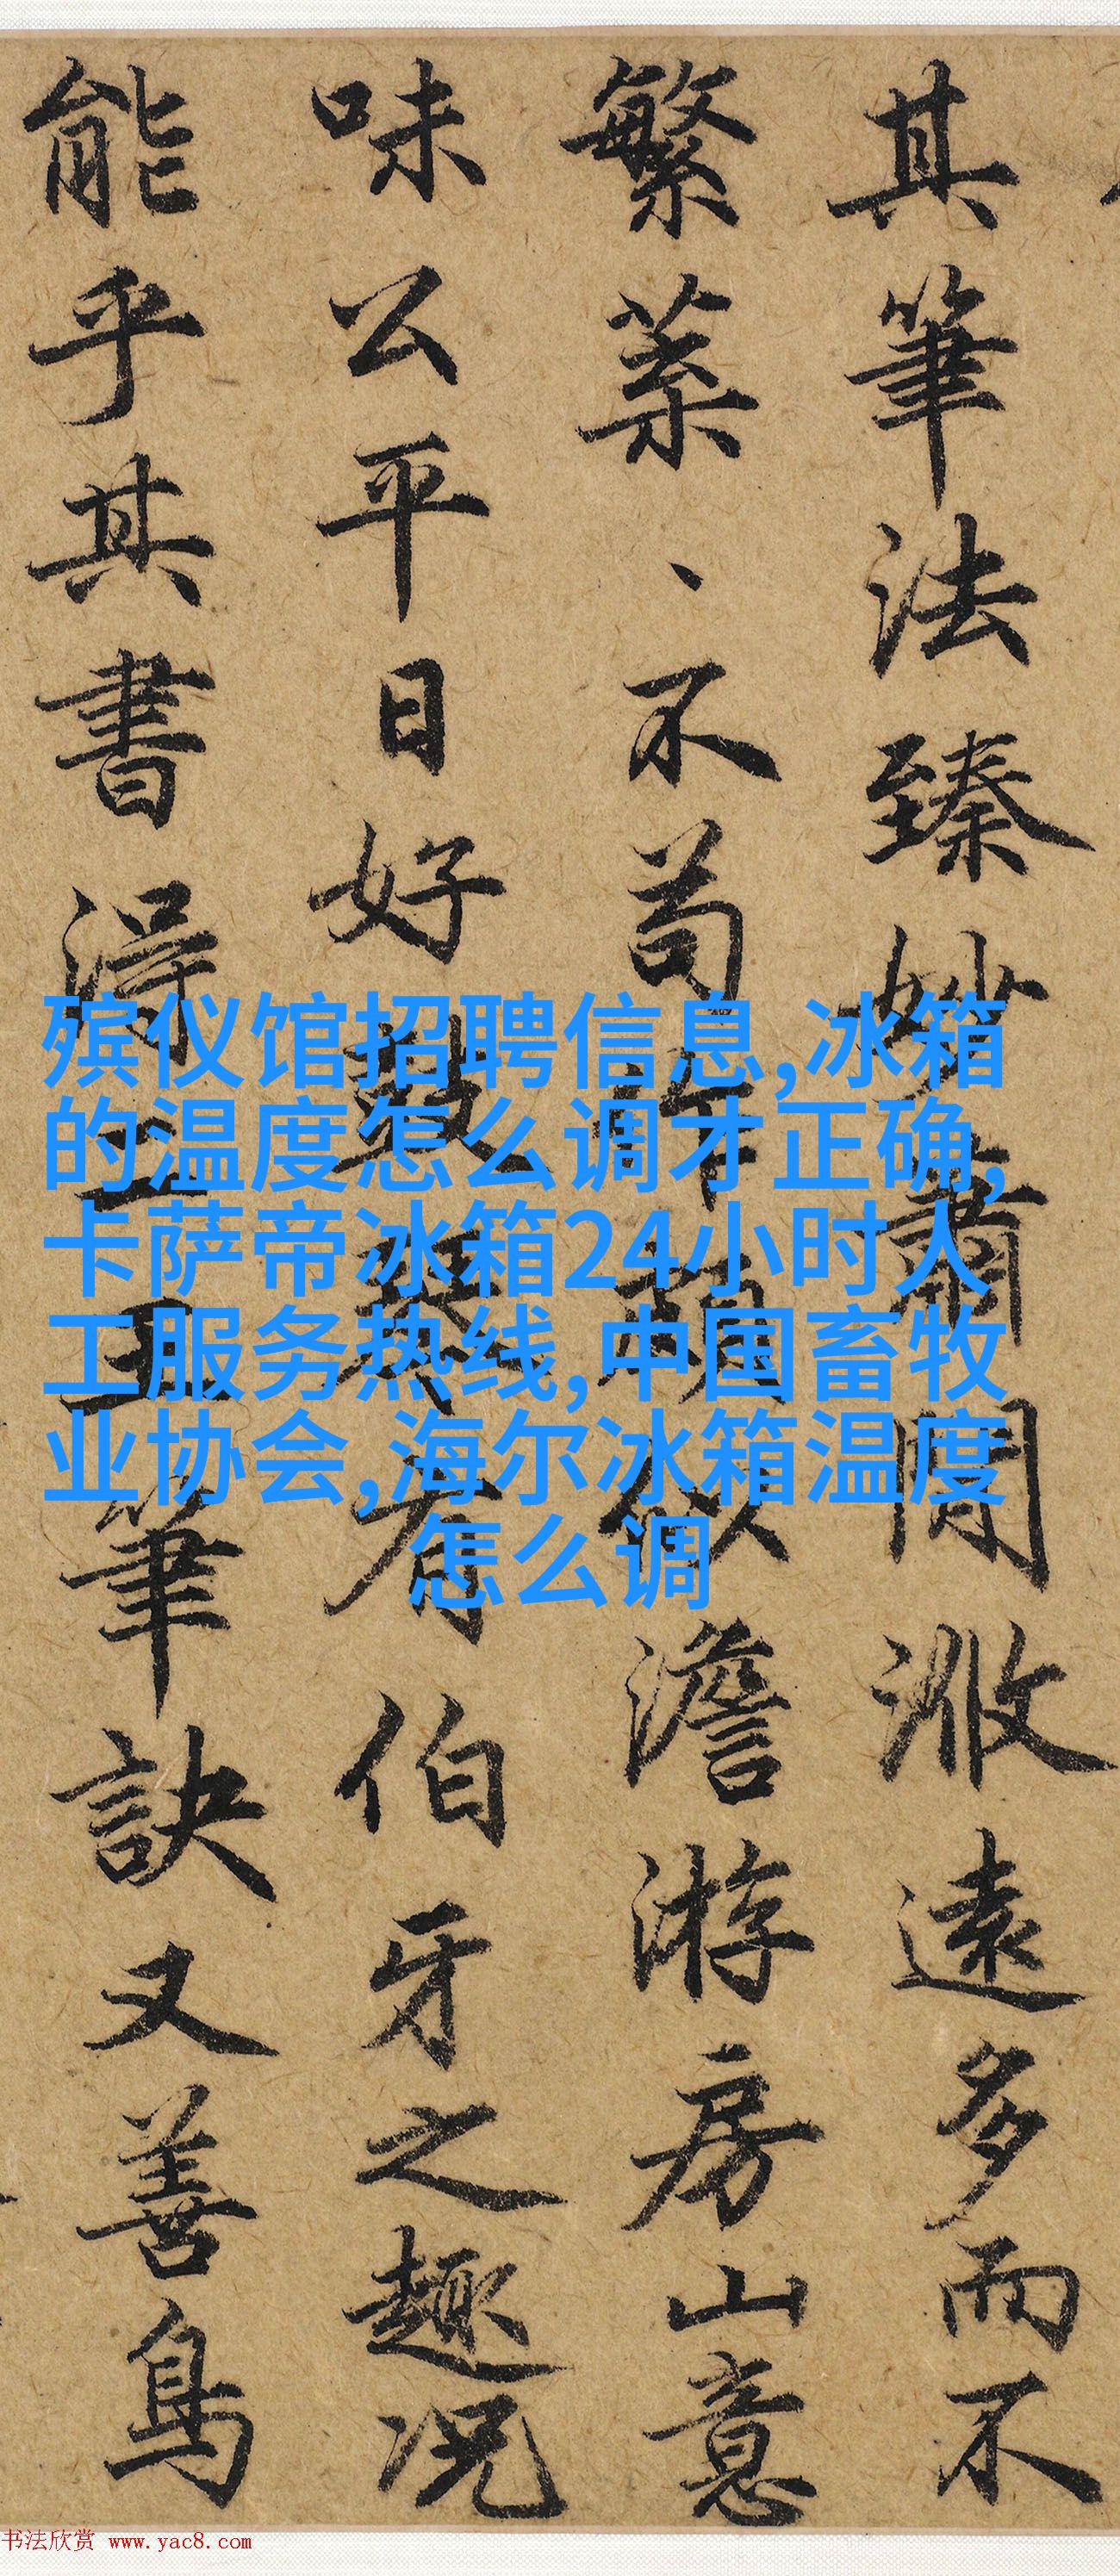 其筆法臻妙蕭閒遠多而不
繁、不苟作頗似澹游房山意
味公平日好鼓琴有伯牙之趣况
能乎其書得二王筆訣又善鳥
殡仪馆招聘信息,冰箱
的温度怎么调才正确,
卡萨帝冰箱24小时人
工服务热线,中国畜牧
业协会,海尔冰箱温度
怎么调
书法欣赏 www.yac8.com